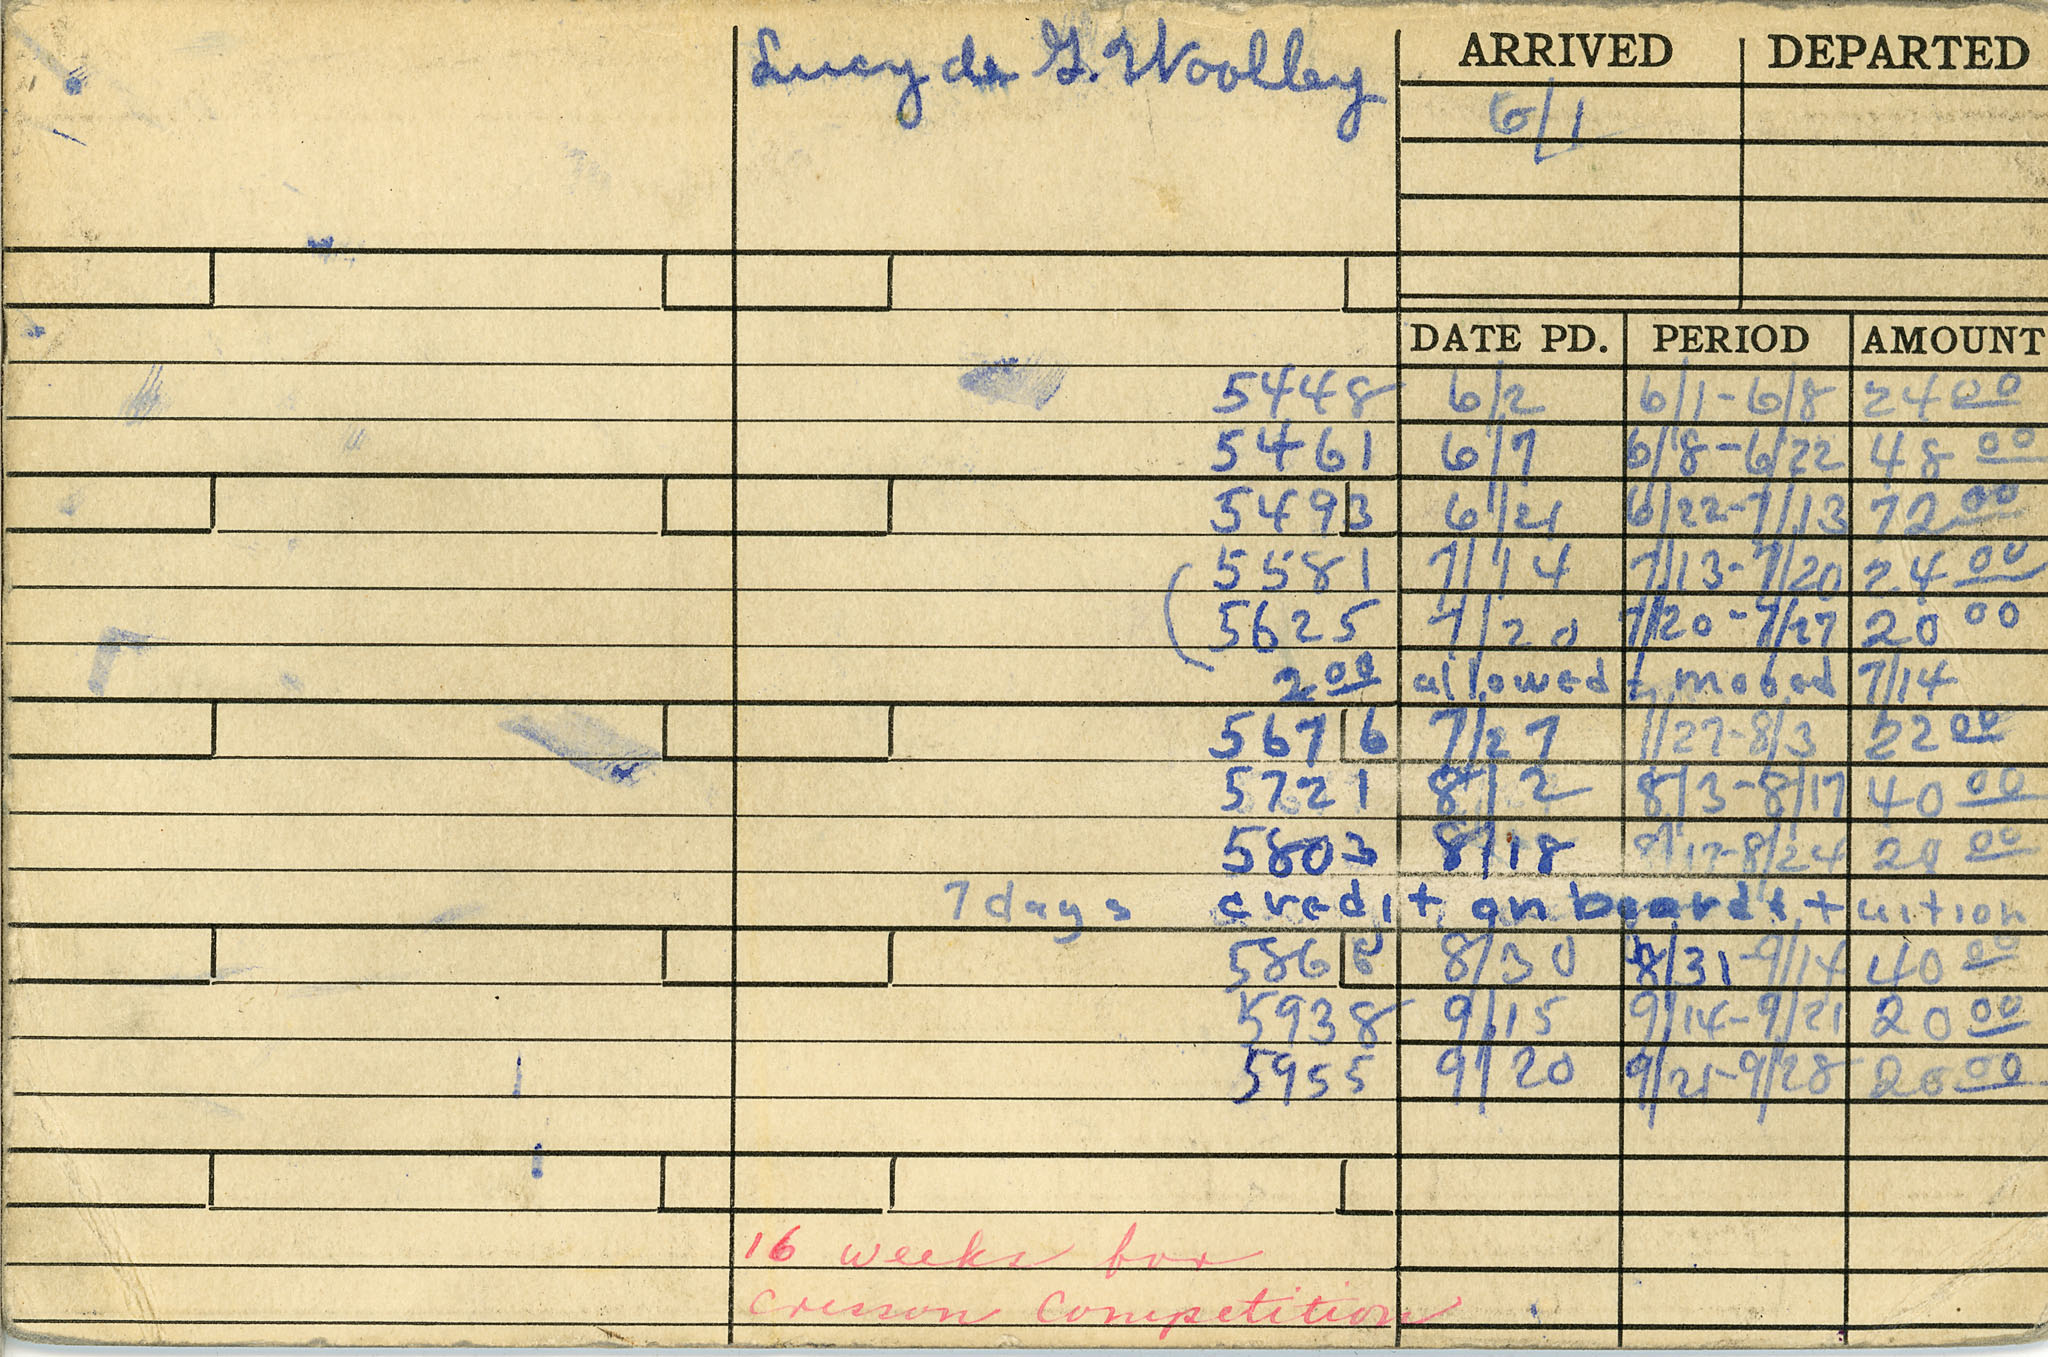 Lucy de G. Woolley
ARRIVED DEPARTED
6/1
DATE PD. PERIOD AMOUNT
5448 6/2 6/1-6/8 24 00
5461 6/7 6/8-6/22 48 00
5493 6/21 6/22-7/13 72 00
5581 7/14 7/13-7/20 24 00
(5625 7/20 7/20-7/27 20 00
2 00 allowed - moved 7/14
5676 7/27 7/27-8/3 22 00
5721 8/2 8/3-8/17 40 00
5803 8/18 8/17-8/24 00
7 days credit on board & tuition
586 8/30 8/31-9/14 40 00
5938 9/15 9/14-9/21 20 00
5955 9/20 9/21-9/28 20 00
16 weeks for
Cresson Competition